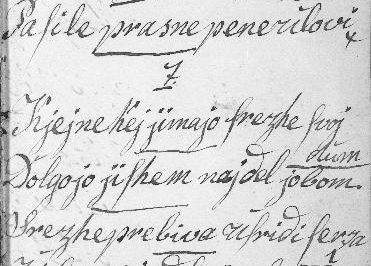 Pa sile prasne penesulovi
7
Kjejne kej jimajo srezhe svoj
dum
Dolgojo jishem najdel jobom.
Srezhe prebiva usridi serza